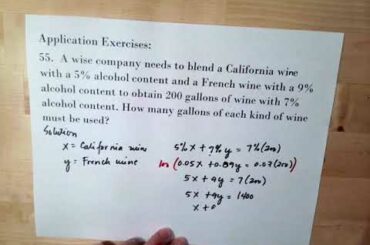 Application Exercises:
55. A wise company needs to blend a California wine
with a 5% alcohol content and a French wine with a 9%
alcohol content to obtain 200 gallons of wine with 7%
alcohol content. How many gallons of each kind of wine
must be used?
Solution
x = California wine 5%x + 7%y = 7%(200)
y = French wine (0.05x + 0.09y = 0.07(200))
5x + 9y = 7(200)
5x + 9y = 1400
x +